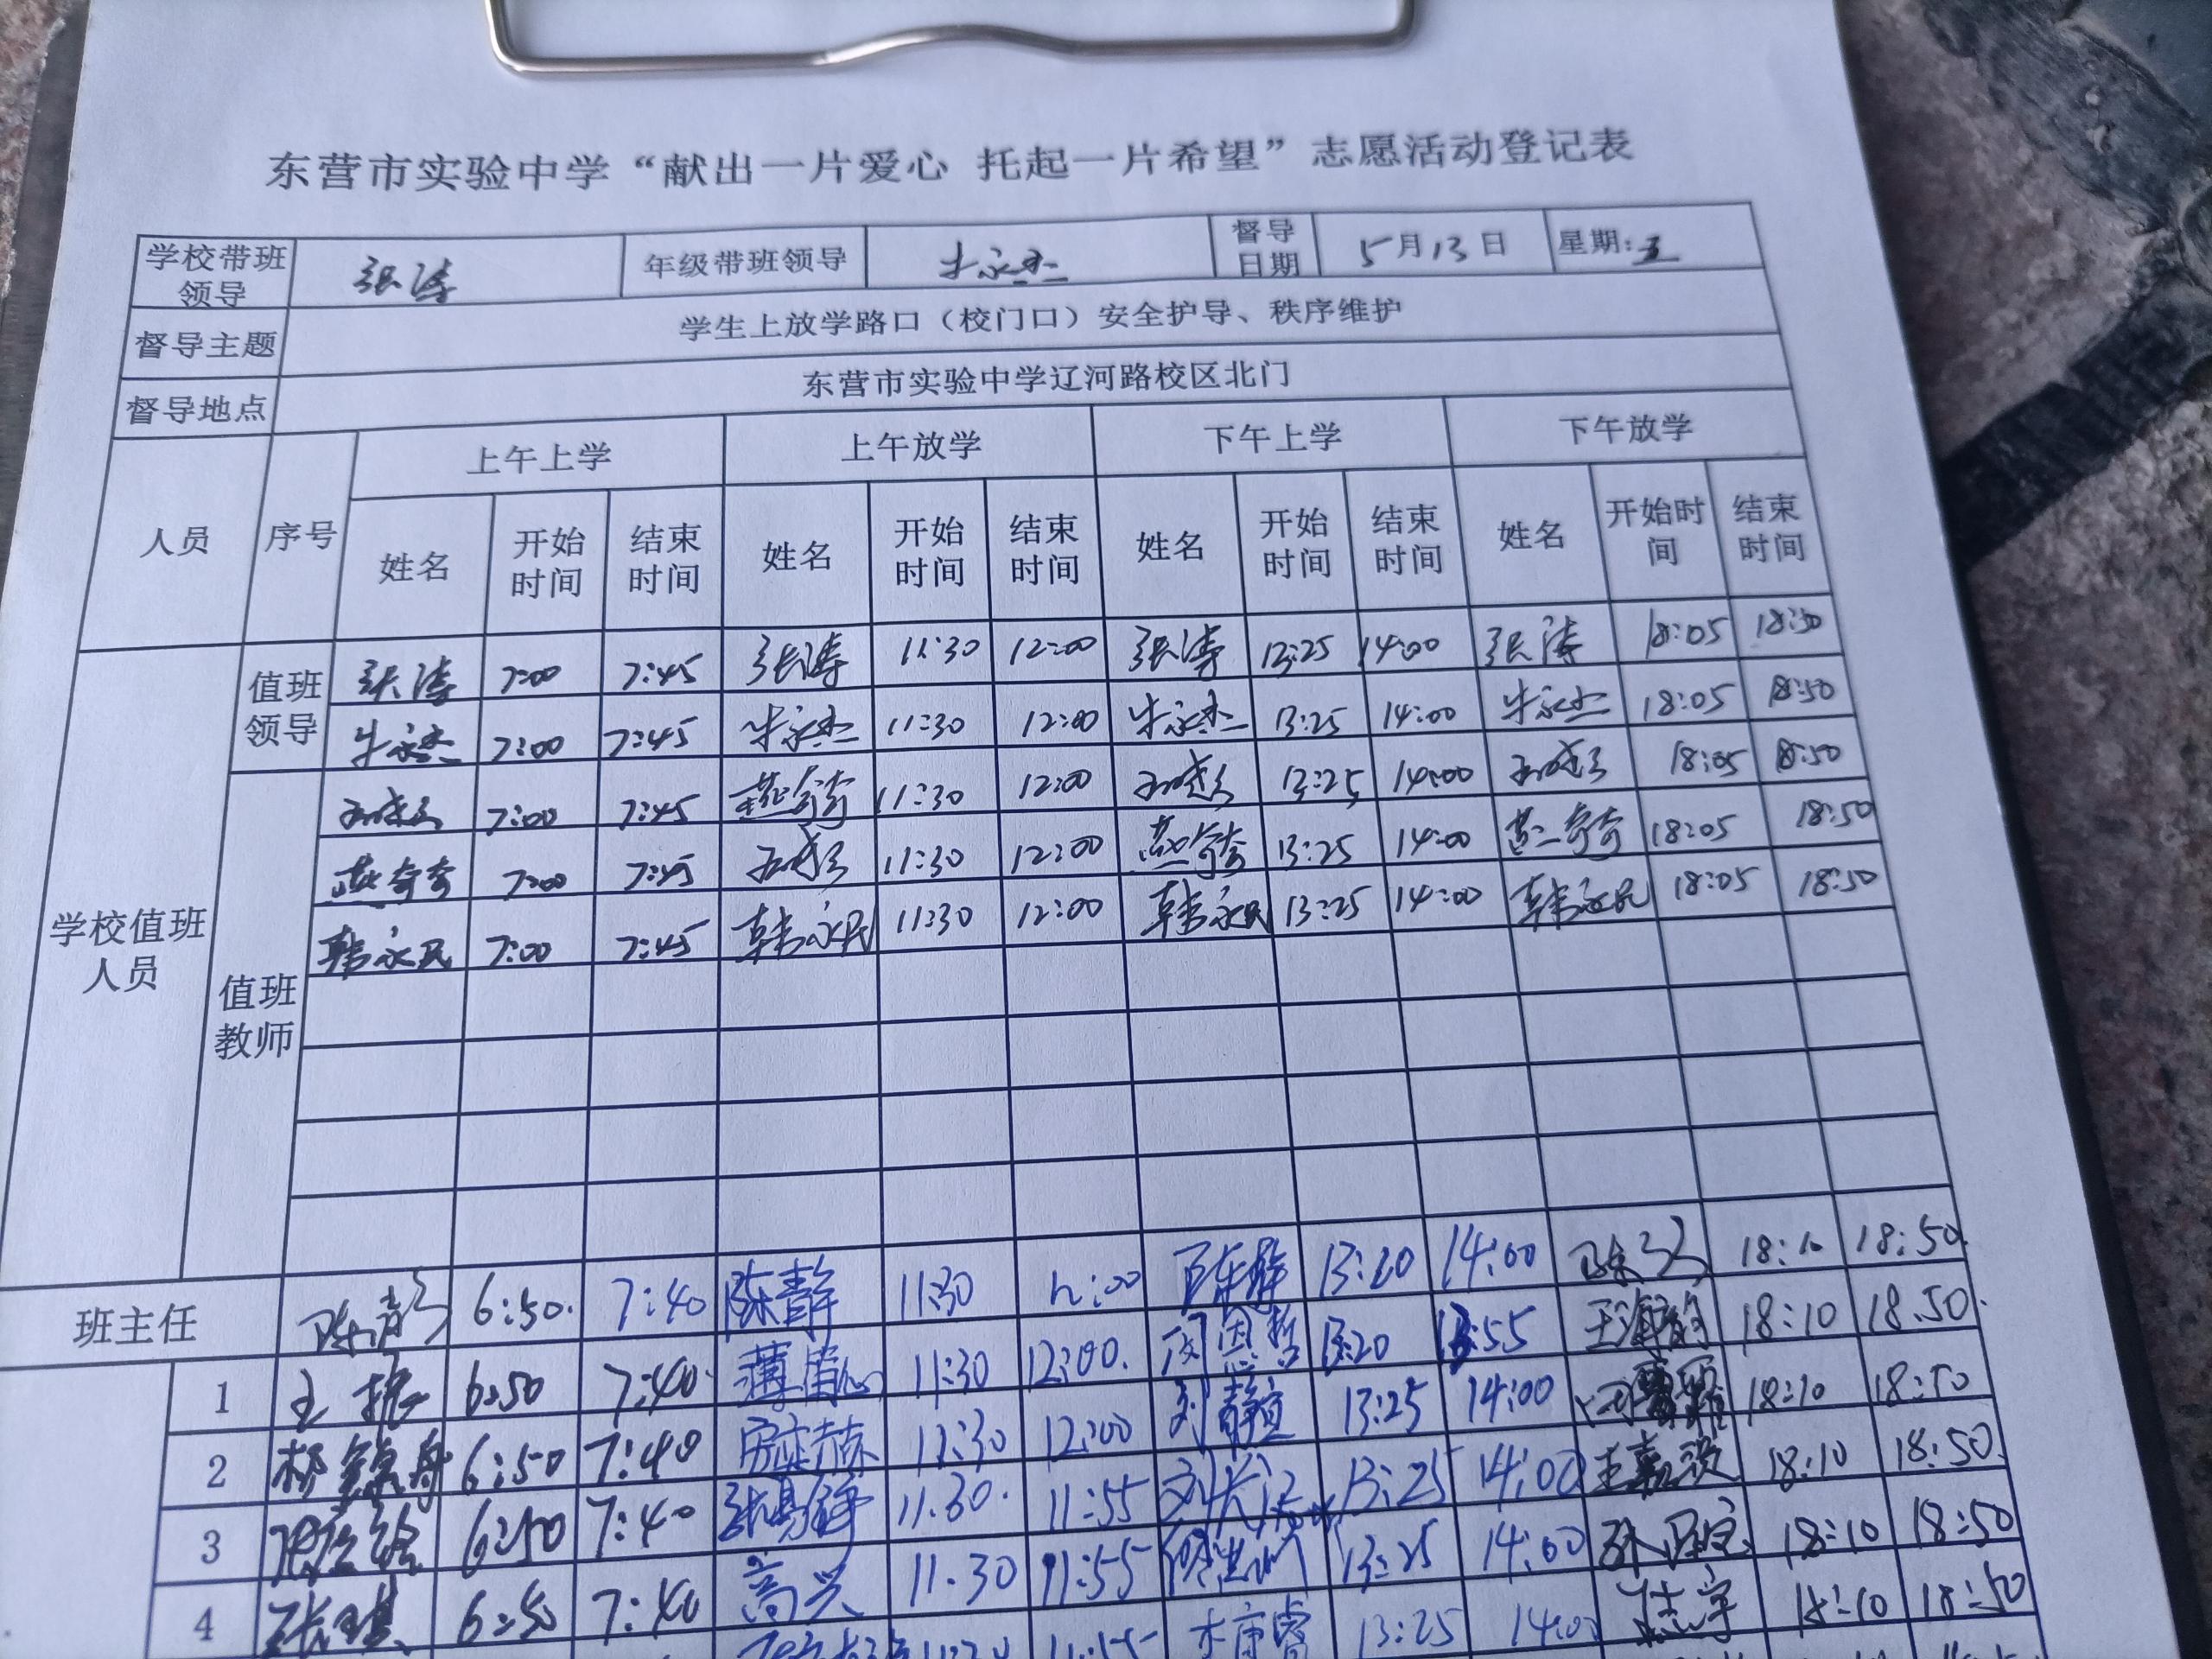 东营市实验中学“献出一片爱心 托起一片希望”志愿活动登记表
学校带班领导 张涛 年级带班领导 牛永杰 督导日期 5月13日 星期:五
督导主题 学生上放学路口（校门口）安全护导、秩序维护
督导地点 东营市实验中学辽河路校区北门
人员 序号 上午上学 上午放学 下午上学 下午放学
姓名 开始时间 结束时间 姓名 开始时间 结束时间 姓名 开始时间 结束时间 姓名 开始时间 结束时间
学校值班人员
值班领导
张涛 7:00 7:45 张涛 11:30 12:00 张涛 13:25 14:00 张涛 18:05 18:50
牛永杰 7:00 7:45 牛永杰 11:30 12:00 牛永杰 13:25 14:00 牛永杰 18:05 18:50
值班教师
7:00 7:45 燕奇奇 11:30 12:00 13:25 14:00 18:05 18:50
燕奇奇 7:00 7:45 11:30 12:00 燕奇奇 13:25 14:00 燕奇奇 18:05 18:50
韩永民 7:00 7:45 韩永民 11:30 12:00 韩永民 13:25 14:00 韩永民 18:05 18:50
班主任 6:50. 7:40 陈静 11:30 12:00 陈静 13:20 14:00 18:10 18:50.
1 6:50 7:40. 11:30 12:00. 13:20 13:55 18:10 18.50.
2 6:50 7:40 11:30 12:00 刘静宜 13:25 14:00 18:10 18:50
3 6:50 7:40 11.30. 11:55 13:25 14:00 18:10 18:50.
4 6:50 7:40 高兴 11.30 11:55 13:25 14:00 18:10 18:50
13:25 14:00 18:10 18:50